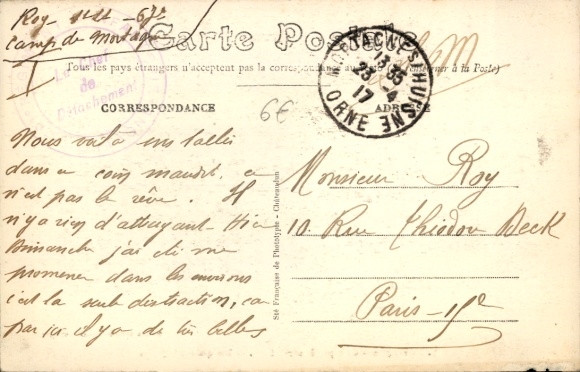 Roy
Camp de Mortagne
Carte Postale
Tous les pays étrangers n'acceptent pas la correspondance au (Se renseigner à la Poste)
FM
Le Chef
de
Détachement
MORTAGNE-S-HUISNE
13 35
23 - 4
17
ORNE
CORRESPONDANCE
ADRESSE
6€
Nous voilà installés
dans ce coin maudit, ce
n'est pas le rêve. Il
n'y a rien d'attrayant. Hier
Dimanche j'ai été me
promener dans les environs
c'est la seule distraction, car
par ici il y a de très belles
Sté Française de Phototypie - Châteaudun
Monsieur Roy
10. Rue Théodore Deck
Paris - 15e